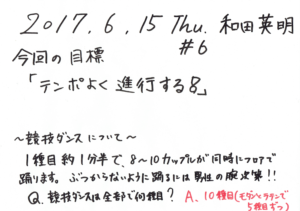 2017.6.15 Thu. 和田英明
#6
今回の目標
「テンポよく進行する8」
〜競技ダンスについて〜
1種目約1分半で、8〜10カップルが同時にフロアで
踊ります。ぶつからないように踊るには男性の腕次第!!
Q.競技ダンスは全部で何種目? A.10種目(モダンとラテンで
5種目ずつ)